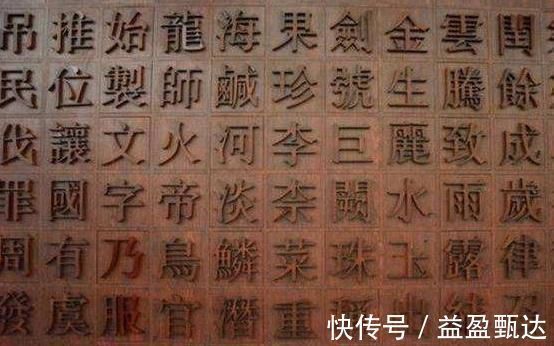 閏餘成歲律
雲騰致雨露結
金生麗水玉出
劍號巨闕珠稱
果珍李柰菜重
海鹹河淡鱗潛
龍師火帝鳥官
始製文字乃服
推位讓國有虞
吊民伐罪周發
快传号 / 益盈甄达